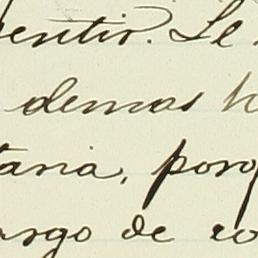 entir. Se
demas h
taria, porq
argo de co